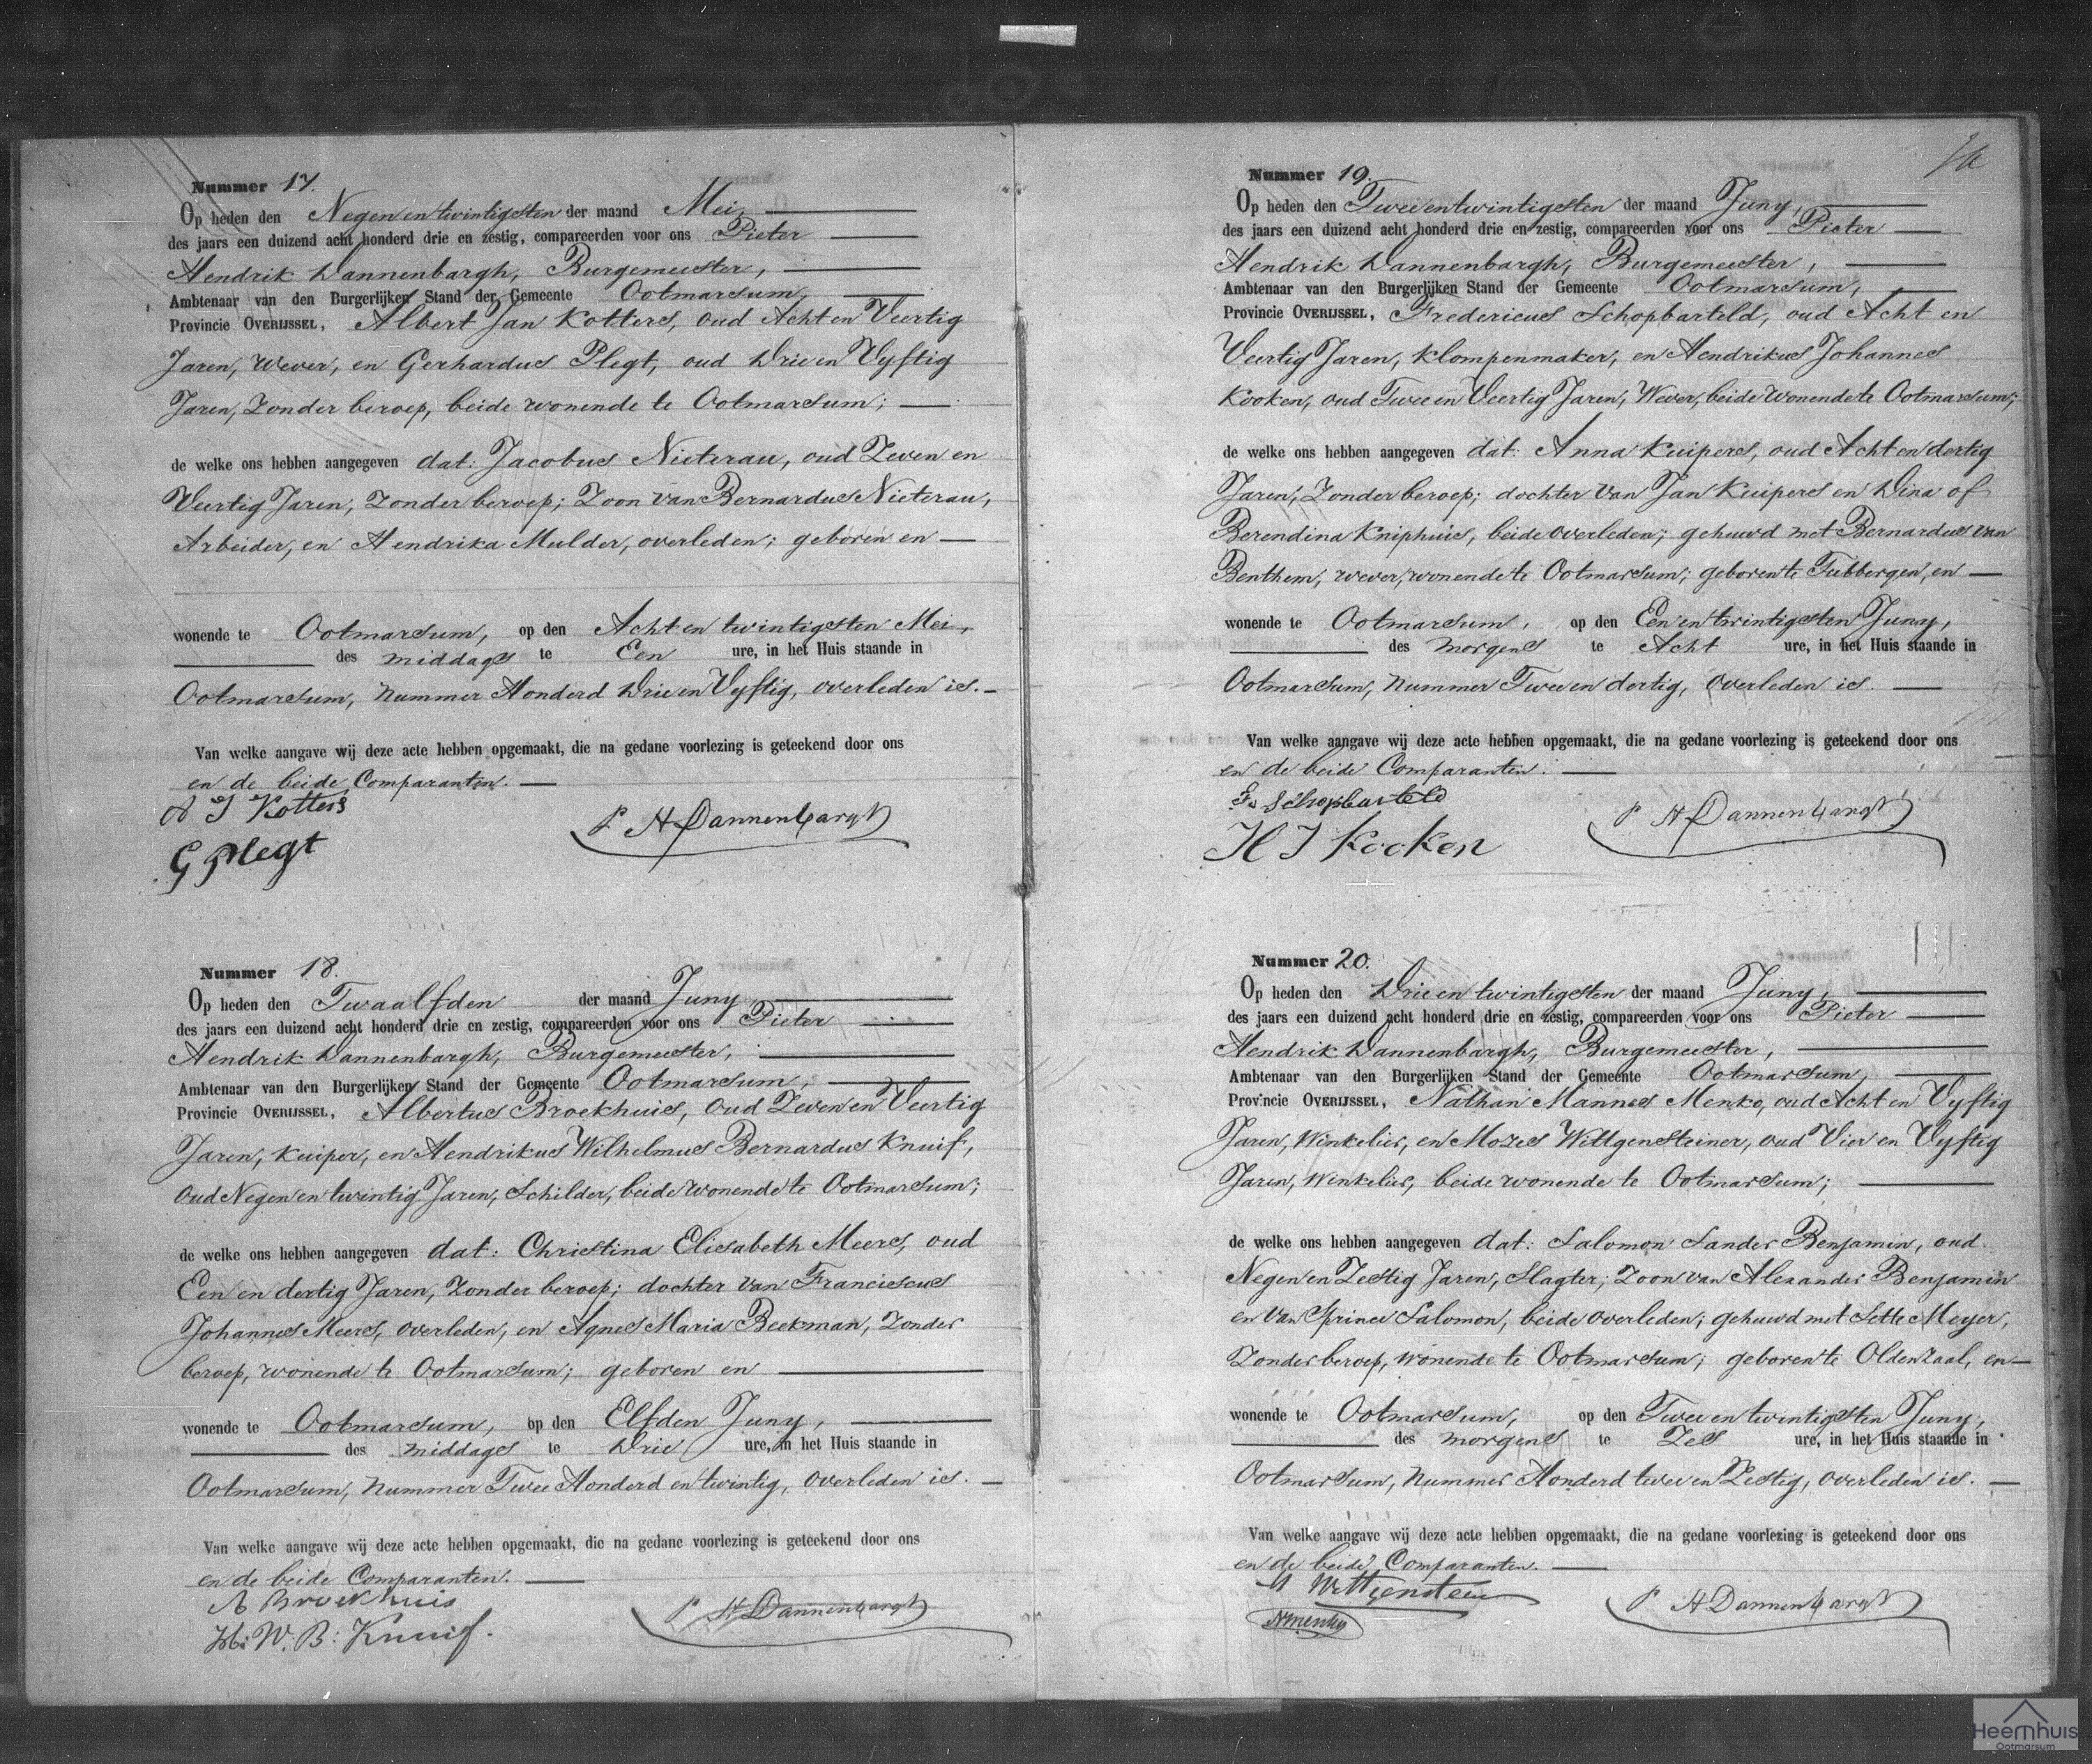 Nummer 17.
Op heden den Negen en twintigsten der maand Mei,
des jaars een duizend acht honderd drie en zestig, compareerden voor ons Pieter
Hendrik Dannenbargh, Burgemeester,
Ambtenaar van den Burgerlijken Stand der Gemeente Ootmarsum,
Provincie OVERIJSSEL, Albert Jan Kotters, oud Acht en Veertig
Jaren, Wever, en Gerhardus Plegt, oud Drie en Vyftig
Jaren, Zonder beroep, beide wonende te Ootmarsum;
de welke ons hebben aangegeven dat: Jacobus Nieterau, oud Zeven en
Veertig Jaren, Zonder beroep; Zoon van Bernardus Nieterau,
Arbeider, en Hendrika Mulder, overleden; geboren en
wonende te Ootmarsum, op den Acht en twintigsten Mei,
des middags te Een ure, in het Huis staande in
Ootmarsum, Nummer Honderd Drie en Vyftig, overleden is.
Van welke aangave wij deze acte hebben opgemaakt, die na gedane voorlezing is geteekend door ons
en de beide Comparanten.
A J Kotters
P H Dannenbargh
G Plegt
Nummer 18.
Op heden den Twaalfden der maand Juny,
des jaars een duizend acht honderd drie en zestig, compareerden voor ons Pieter
Hendrik Dannenbargh, Burgemeester,
Ambtenaar van den Burgerlijken Stand der Gemeente Ootmarsum,
Provincie OVERIJSSEL, Albertus Broekhuis, oud Zeven en Veertig
Jaren, Kuiper, en Hendrikus Wilhelmus Bernardus Knuif,
oud Negen en twintig Jaren, Schilder, beide wonende te Ootmarsum;
de welke ons hebben aangegeven dat: Christina Elisabeth Meers, oud
Een en dertig Jaren, Zonder beroep; dochter van Franciscus
Johannes Meers, overleden, en Agnes Maria Beekman, Zonder
beroep, wonende te Ootmarsum; geboren en
wonende te Ootmarsum, op den Elfden Juny,
des middags te Drie ure, in het Huis staande in
Ootmarsum, Nummer Twee Honderd en twintig, overleden is.
Van welke aangave wij deze acte hebben opgemaakt, die na gedane voorlezing is geteekend door ons
en de beide Comparanten.
A Broekhuis
P H Dannenbargh
H: W. B: Knuif.
Nummer 19.
Op heden den Twee en twintigsten der maand Juny,
des jaars een duizend acht honderd drie en zestig, compareerden voor ons Pieter
Hendrik Dannenbargh, Burgemeester,
Ambtenaar van den Burgerlijken Stand der Gemeente Ootmarsum,
Provincie OVERIJSSEL, Fredericus Schopbarteld, oud Acht en
Veertig Jaren, Klompenmaker, en Hendrikus Johannes
Kooken, oud Twee en Veertig Jaren, Wever, beide wonende te Ootmarsum;
de welke ons hebben aangegeven dat: Anna Kuipers, oud Acht en dertig
Jaren, Zonder beroep; dochter van Jan Kuipers en Dina of
Berendina Kniphuis, beide overleden; gehuwd met Bernardus van
Benthem, wever, wonende te Ootmarsum; geboren te Tubbergen, en
wonende te Ootmarsum, op den Een en twintigsten Juny,
des morgens te Acht ure, in het Huis staande in
Ootmarsum, Nummer Twee en dertig, overleden is.
Van welke aangave wij deze acte hebben opgemaakt, die na gedane voorlezing is geteekend door ons
en de beide Comparanten.
F. Schopbarteld
P H Dannenbargh
H J Kooken
Nummer 20.
Op heden den Drie en twintigsten der maand Juny,
des jaars een duizend acht honderd drie en zestig, compareerden voor ons Pieter
Hendrik Dannenbargh, Burgemeester,
Ambtenaar van den Burgerlijken Stand der Gemeente Ootmarsum,
Provincie OVERIJSSEL, Nathan Mannes Menko, oud Acht en Vyftig
Jaren, Winkelier, en Mozes Wittgensteiner, oud Vier en Vyftig
Jaren, Winkelier, beide wonende te Ootmarsum;
de welke ons hebben aangegeven dat: Salomon Sander Benjamin, oud
Negen en Zestig Jaren, Slagter; Zoon van Alexander Benjamin
en van Sprince Salomon, beide overleden; gehuwd met Sette Meyer,
Zonder beroep, wonende te Ootmarsum; geboren te Oldenzaal, en
wonende te Ootmarsum, op den Twee en twintigsten Juny,
des morgens te Zes ure, in het Huis staande in
Ootmarsum, Nummer Honderd twee en Zestig, overleden is.
Van welke aangave wij deze acte hebben opgemaakt, die na gedane voorlezing is geteekend door ons
en de beide Comparanten.
M Wittgenstein
P H Dannenbargh
Heemhuis
Ootmarsum